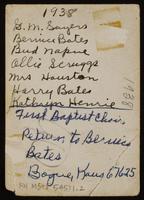 1938
G. M. Sayers
Bernice Bates
Bud Napue
Ollie Scruggs
Mrs Houston
Harry Bates
Kathryn Henrie
First Baptist Choir.
Return to Bernice
Bates
Bogue, Kans 67625
RH MS
1938